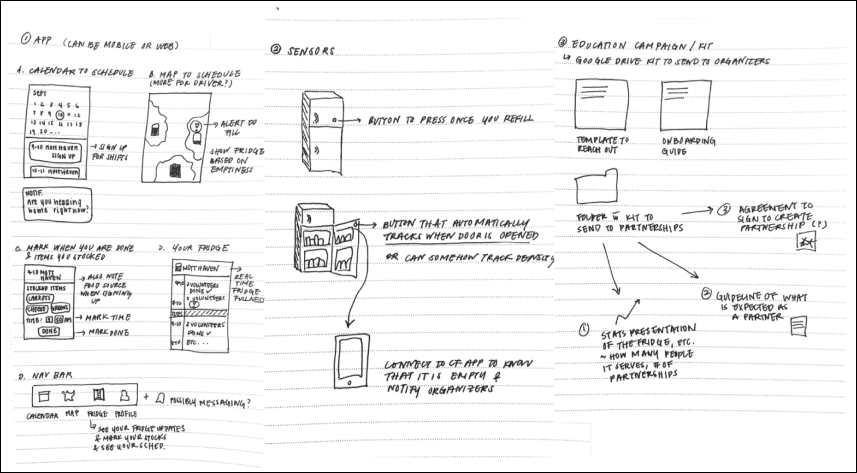 ① APP (CAN BE MOBILE OR WEB)
A. CALENDAR TO SCHEDULE
SEPT
1 2 3 4 5 6
7 8 9 10 11 12
13 14 15 16 17 18
19 20 ...
9-10 MOTT HAVEN
SIGN UP
10-11 MOTT HAVEN
→ SIGN UP
FOR SHIFTS
NOTIF:
Are you heading
home right now?
B. MAP TO SCHEDULE
(MORE FOR DRIVER?)
→ ALERT TO
FILL
SHOW FRIDGE
BASED ON
EMPTINESS
C. MARK WHEN YOU ARE DONE
& ITEMS YOU STOCKED
9-10 MOTT
HAVEN
STOCKED ITEMS
CARROTS
CHEESE
TIME:
DONE
→ ALSO NOTE
FOOD SOURCE
WHEN SIGNING
UP
→ MARK TIME
→ MARK DONE
D. YOUR FRIDGE
MOTT HAVEN
2 VOLUNTEERS
DONE ✓
VOLUNTEERS
2 VOLUNTEERS
DONE ✓
ETC...
→ REAL
TIME
FRIDGE
FULLNESS
D. NAV BAR
+ POSSIBLY MESSAGING?
CALENDAR MAP FRIDGE PROFILE
↳ SEE YOUR FRIDGE UPDATES
& MARK YOUR STOCKS
& SEE YOUR SCHED.
② SENSORS
→ BUTTON TO PRESS ONCE YOU REFILL
→ BUTTON THAT AUTOMATICALLY
TRACKS WHEN DOOR IS OPENED
OR CAN SOMEHOW TRACK DEPOSITS
CONNECT TO CF APP TO KNOW
THAT IT IS EMPTY &
NOTIFY ORGANIZERS
③ EDUCATION CAMPAIGN / KIT
↳ GOOGLE DRIVE KIT TO SEND TO ORGANIZERS
TEMPLATE TO
REACH OUT
ONBOARDING
GUIDE
FOLDER W KIT TO
SEND TO PARTNERSHIPS
③ AGREEMENT TO
SIGN TO CREATE
PARTNERSHIP (?)
② GUIDELINE OF WHAT
IS EXPECTED AS
A PARTNER
① STATS PRESENTATION
OF THE FRIDGE, ETC.
~ HOW MANY PEOPLE
IT SERVES, # OF
PARTNERSHIPS